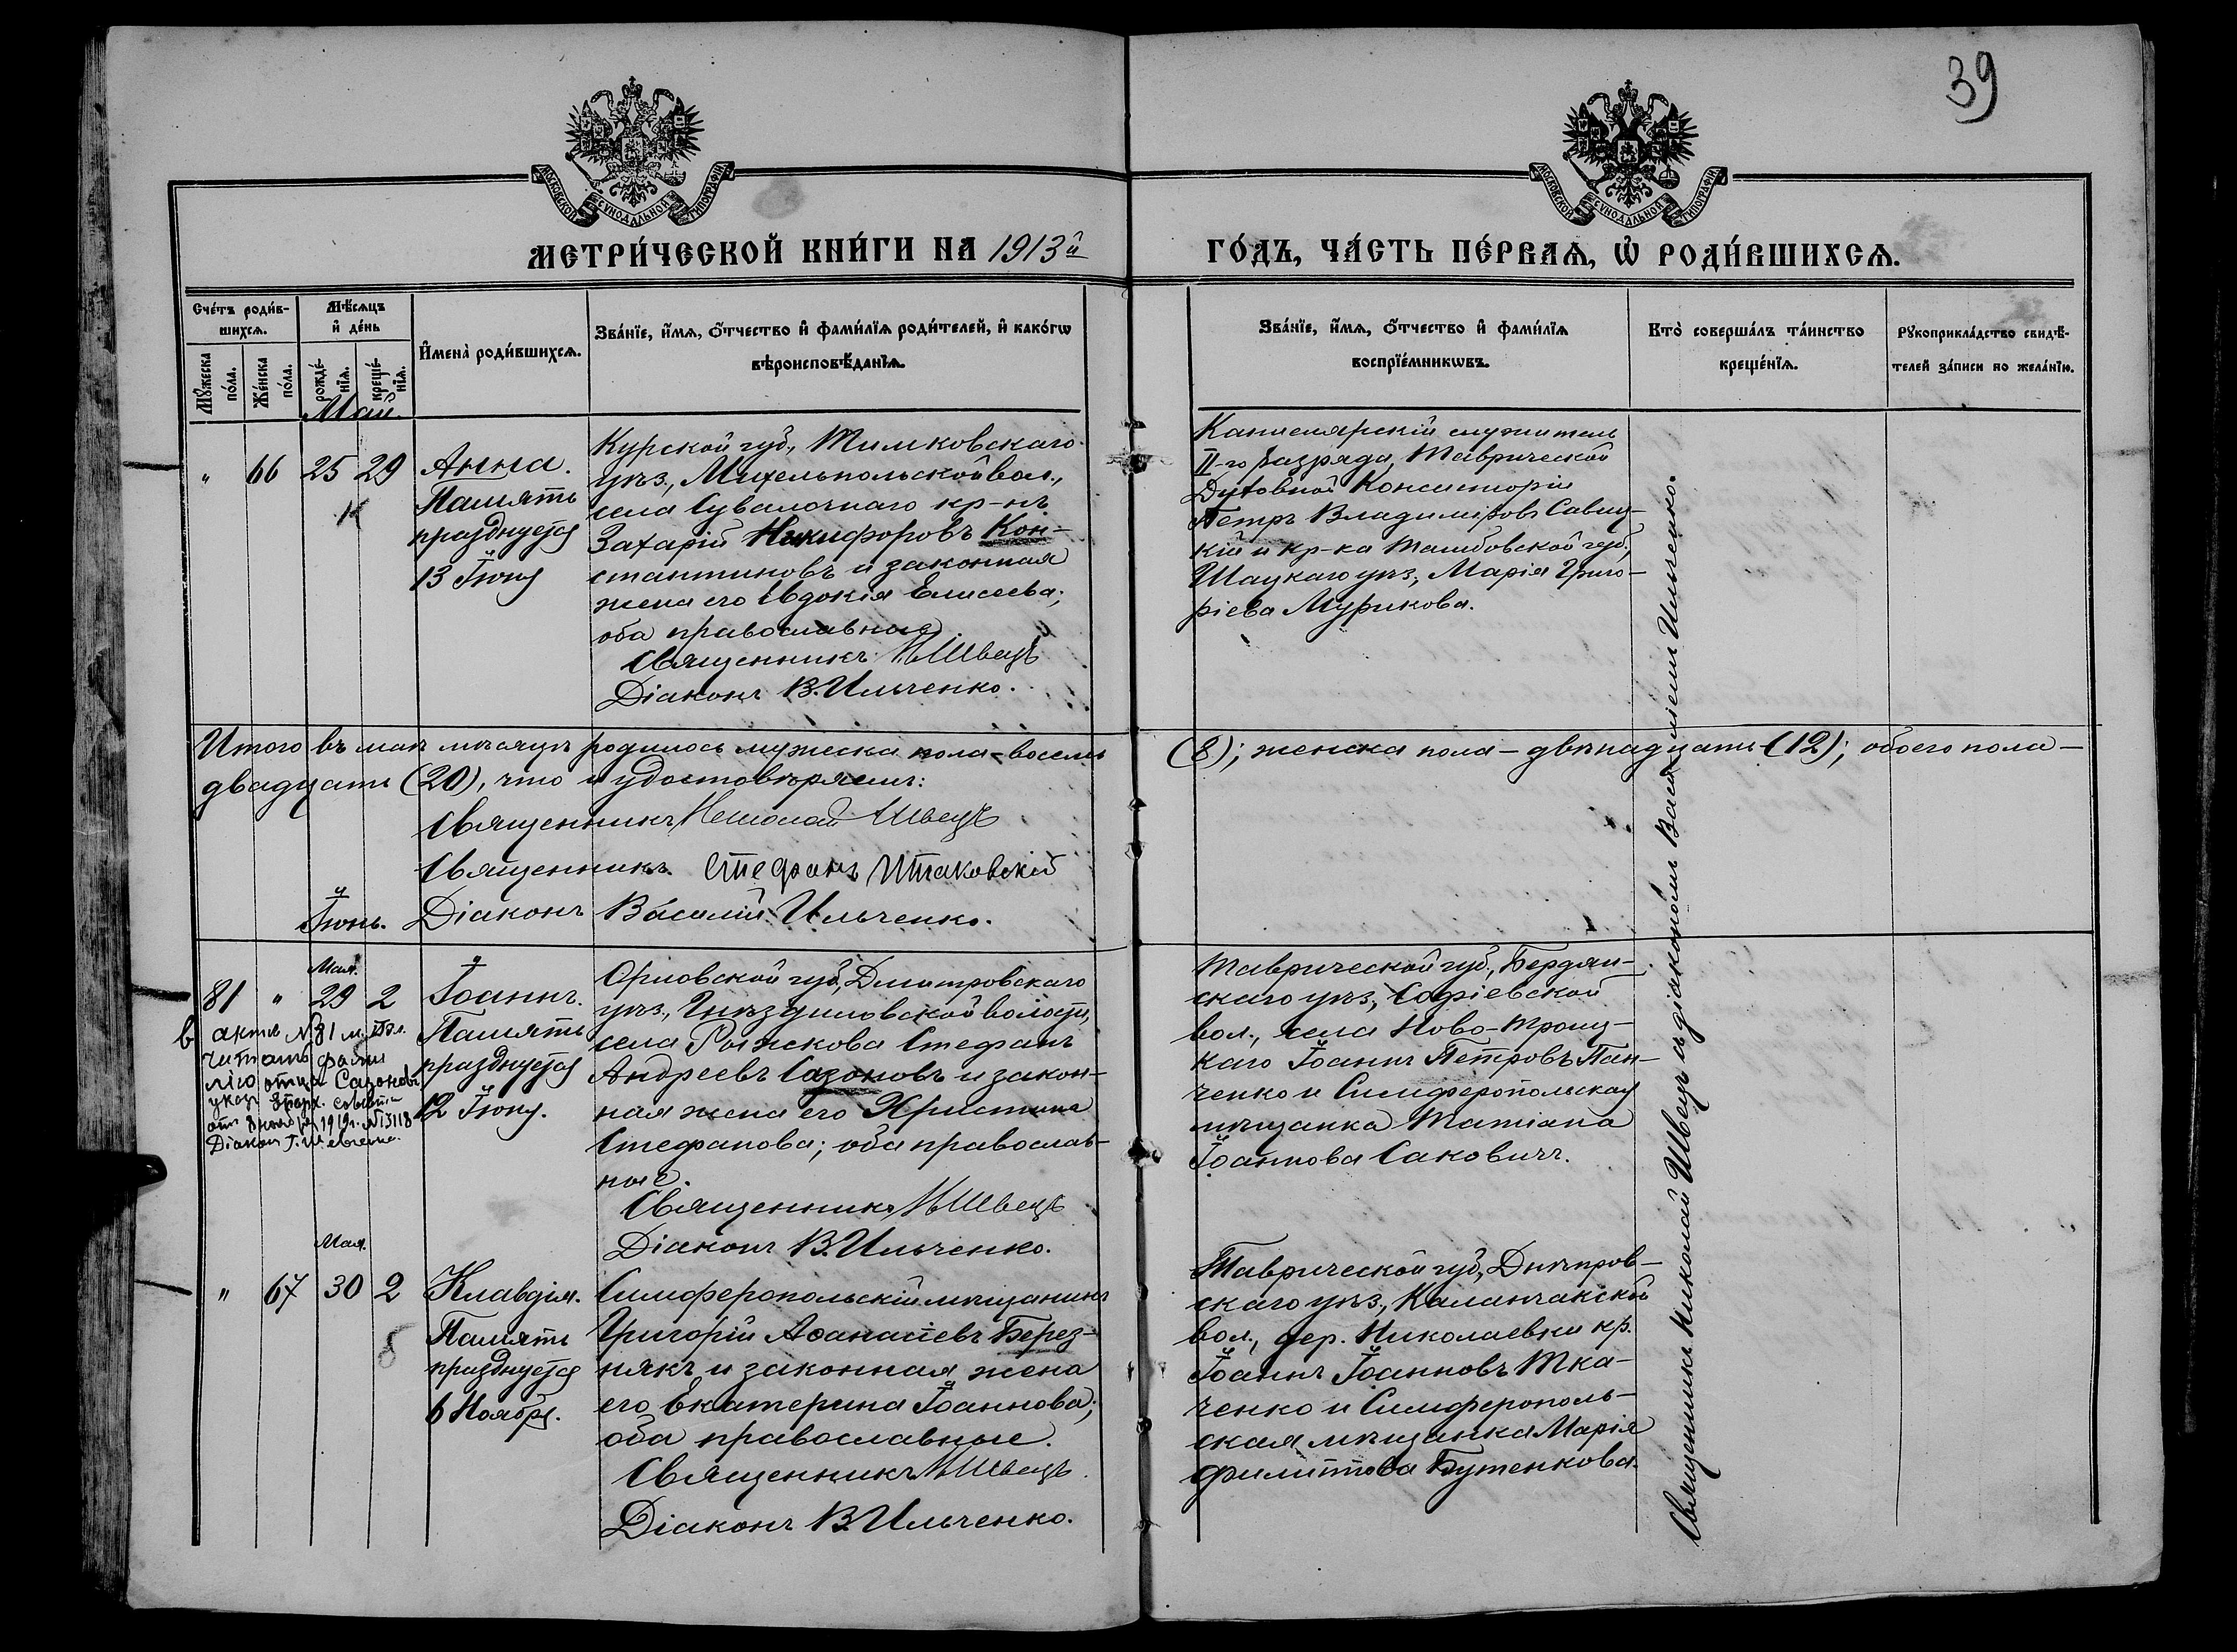 39
МОСКОВСКОЙ СѴНОДАЛЬНОЙ ТИПОГРАФІИ
МОСКОВСКОЙ СѴНОДАЛЬНОЙ ТИПОГРАФІИ
МЕТРИ́ЧЕСКОЙ КНИ́ГИ НА 1913й
ГО́ДЪ, ЧА́СТЬ ПЕ́РВАѦ, Ѡ҆ РОДИ́ВШИХСѦ.
Сче́тъ роди́в-
шихсѧ.
Мѣ́сѧцъ
и҆ де́нь
Мꙋ́жеска по́ла.
Же́нска по́ла.
рожде́-
нїѧ.
креще́-
нїѧ.
И҆мена̀ роди́вшихсѧ.
Зва́нїе, и҆́мѧ, ѻ҆́тчество и҆ фами́лїѧ роди́телей, и҆ како́гѡ
вѣроисповѣ́данїѧ.
Зва́нїе, и҆́мѧ, ѻ҆́тчество и҆ фами́лїѧ
воспрїе́мникѡвъ.
Кто̀ соверша́лъ та́инство
креще́нїѧ.
Рꙋкоприкла́дство свидѣ́-
телей за́писи по жела́нїю.
Май.
" 66 25 29 Анна.
Память
празднуется
13 Іюня
Курской губ., Тимковскаго
уѣз., Михельпольской вол.,
села Сувалочнаго кр-нъ
Захарій Никифоровъ Кон-
стантиновъ и законная
жена его Евдокія Елисеева;
оба православные.
Священникъ Н. Швецъ
Діаконъ В. Ильченко.
Канцелярскій служитель
II-го разряда, Таврической
Духовной Консисторіи
Петръ Владиміровъ Савиц-
кій и кр-ка Тамбовской губ.,
Шацкаго уѣз., Марія Григо-
ріева Мурикова.
Итого въ маѣ мѣсяцѣ родилось мужеска пола – восемь (8); женска пола – двѣнадцать (12); обоего пола –
двадцать (20), что и удостовѣряемъ:
Священникъ Николай Швецъ
Священникъ Стефанъ
Діаконъ Василій Ильченко.
Іюнь.
Мая.
81 " 29 2 Іоаннъ.
Память
празднуется
12 Іюня.
В актѣ № 81 м. пола
читать фами
лію отца Сазоновъ
указ Епарх. совѣта
1919г. № 13118
Діакон
Орловской губ., Дмитровскаго
уѣз., Гнѣздиловской волости,
села Рыжкова Стефанъ
Андреевъ Сазоновъ и закон-
ная жена его Христина
Стефанова; оба православ-
ные.
Священникъ Н. Швецъ
Діаконъ В. Ильченко.
Таврической губ., Бердян-
скаго уѣз., Софіевской
вол., села Ново-Троиц-
каго Іоаннъ Петровъ Пан-
ченко и Симферопольская
мѣщанка Татіана
Іоаннова Саковичъ.
Мая.
" 67 30 2 Клавдія.
8
Память
празднуется
6 Ноября.
Симферопольскій мѣщанинъ
Григорій Аѳанасіевъ Берез-
някъ и законная жена
его Екатерина Іоаннова;
оба православные.
Священникъ Н. Швецъ
Діаконъ В. Ильченко.
Таврической губ., Днѣпров-
скаго уѣз., Каланчакской
вол., дер. Николаевки кр.
Іоаннъ Іоанновъ Тка-
ченко и Симферополь-
ская мѣщанка Марія
Филиппова Бутенкова.
Священникъ Николай Швецъ съ діакономъ Василіемъ Ильченко.